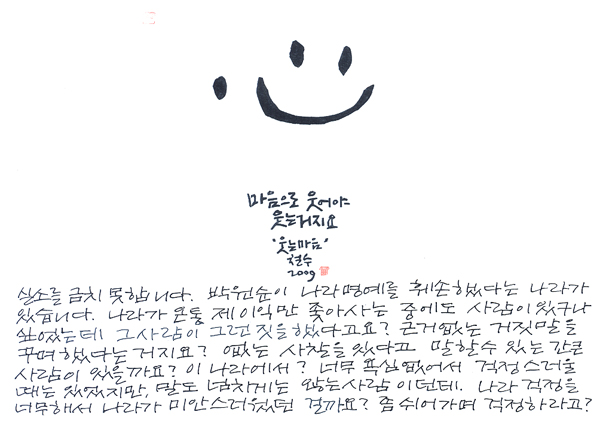 마음으로 웃어야
웃는거지요
'웃는마음'
철수
2009
실소를 금치 못합니다. 박원순이 나라명예를 훼손했다는 나라가
있습니다. 나라가 온통 제 이익만 좇아사는 중에도 사람이 있구나
싶었는데 그 사람이 그런 짓을 했다고요? 근거없는 거짓말을
꾸며했다는 거지요? 없는 사찰을 있다고 말할 수 있는 간큰
사람이 있을까요? 이 나라에서? 너무 욕심없어서 걱정스러울
때는 있었지만, 말도 넘치게는 않는 사람이던데. 나라 걱정을
너무해서 나라가 미안스러웠던 걸까요? 좀 쉬어가며 걱정하라고?